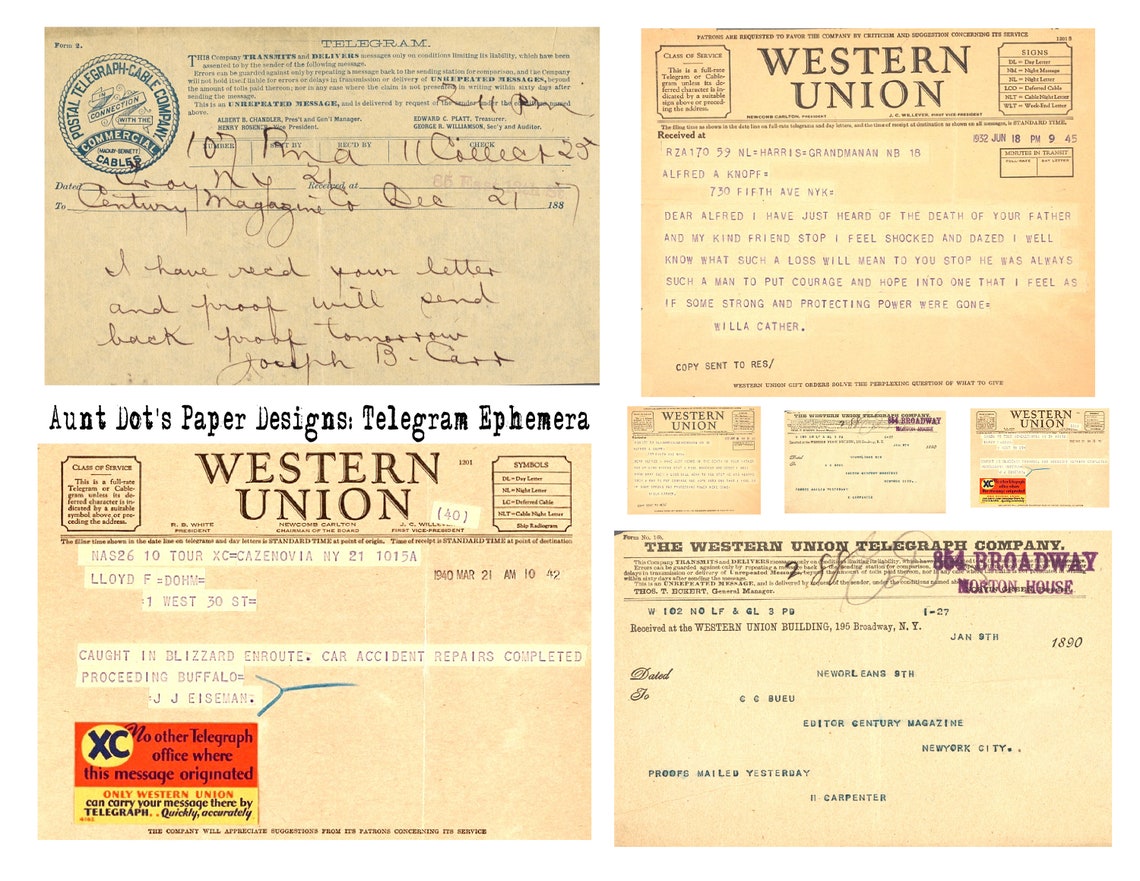 Form 2.
TELEGRAM.
POSTAL TELEGRAPH-CABLE COMPANY
CONNECTION WITH THE
(MACKAY-BENNETT)
COMMERCIAL CABLES
THIS Company TRANSMITS and DELIVERS messages only on conditions limiting its liability, which have been
assented to by the sender of the following message.
Errors can be guarded against only by repeating a message back to the sending station for comparison, and the Company
will not hold itself liable for errors or delays in transmission or delivery of UNREPEATED MESSAGES, beyond
the amount of tolls paid thereon; nor in any case where the claim is not presented in writing within sixty days after
sending the message.
This is an UNREPEATED MESSAGE, and is delivered by request of the sender under the conditions named
above.
ALBERT B. CHANDLER, Pres't and Gen'l Manager.
EDWARD C. PLATT, Treasurer.
HENRY ROSENER, Vice President.
GEORGE R. WILLIAMSON, Sec'y and Auditor.
SENT BY REC'D BY CHECK
107 11 Collect 25
Dated Troy N.Y 21 Received at
To Century Magazine Co Dec 21 1887
I have recd your letter
and proof will send
back proof tomorrow
Joseph B. Carr
PATRONS ARE REQUESTED TO FAVOR THE COMPANY BY CRITICISM AND SUGGESTION CONCERNING ITS SERVICE
1201 S
CLASS OF SERVICE
This is a full-rate
Telegram or Cable-
gram unless its de-
ferred character is
indicated by a suitable
sign above or preced-
ing the address.
WESTERN
UNION
SIGNS
DL = Day Letter
NM = Night Message
NL = Night Letter
LCO = Deferred Cable
NLT = Cable Night Letter
WLT = Week-End Letter
NEWCOMB CARLTON, PRESIDENT
J. C. WILLEVER, FIRST VICE-PRESIDENT
The filing time as shown in the date line on full-rate telegrams and day letters, and the time of receipt at destination as shown on all messages, is STANDARD TIME.
Received at
1932 JUN 18 PM 9 45
MINUTES IN TRANSIT
FULL-RATE DAY LETTER
RZA170 59 NL=HARRIS=GRANDMANAN NB 18
ALFRED A KNOPF=
730 FIFTH AVE NYK=
DEAR ALFRED I HAVE JUST HEARD OF THE DEATH OF YOUR FATHER
AND MY KIND FRIEND STOP I FEEL SHOCKED AND DAZED I WELL
KNOW WHAT SUCH A LOSS WILL MEAN TO YOU STOP HE WAS ALWAYS
SUCH A MAN TO PUT COURAGE AND HOPE INTO ONE THAT I FEEL AS
IF SOME STRONG AND PROTECTING POWER WERE GONE=
WILLA CATHER.
COPY SENT TO RES/
WESTERN UNION GIFT ORDERS SOLVE THE PERPLEXING QUESTION OF WHAT TO GIVE
Aunt Dot's Paper Designs: Telegram Ephemera
WESTERN
UNION
THE WESTERN UNION TELEGRAPH COMPANY.
854 BROADWAY
MORTON HOUSE
WESTERN
UNION
XC
CLASS OF SERVICE
This is a full-rate
Telegram or Cable-
gram unless its de-
ferred character is in-
dicated by a suitable
symbol above or pre-
ceding the address.
WESTERN
UNION
1201
(40)
SYMBOLS
DL = Day Letter
NL = Night Letter
LC = Deferred Cable
NLT = Cable Night Letter
Ship Radiogram
R. B. WHITE
PRESIDENT
NEWCOMB CARLTON
CHAIRMAN OF THE BOARD
J. C. WILLEVER
FIRST VICE-PRESIDENT
The filing time shown in the date line on telegrams and day letters is STANDARD TIME at point of origin. Time of receipt is STANDARD TIME at point of destination
NAS26 10 TOUR XC=CAZENOVIA NY 21 1015A
LLOYD F =DOHM=
1940 MAR 21 AM 10 42
=1 WEST 30 ST=
CAUGHT IN BLIZZARD ENROUTE. CAR ACCIDENT REPAIRS COMPLETED
PROCEEDING BUFFALO=
=J J EISEMAN.
XC No other Telegraph
office where
this message originated
ONLY WESTERN UNION
can carry your message there by
TELEGRAPH.. Quickly, accurately
THE COMPANY WILL APPRECIATE SUGGESTIONS FROM ITS PATRONS CONCERNING ITS SERVICE
THE WESTERN UNION TELEGRAPH COMPANY.
854 BROADWAY
MORTON HOUSE
THOS. T. ECKERT, General Manager.
W 102 NO LF & GL 3 PD 1-27
Received at the WESTERN UNION BUILDING, 195 Broadway, N. Y.
JAN 9TH 1890
Dated NEWORLEANS 9TH
To C C BUEU
EDITOR CENTURY MAGAZINE
NEWYORK CITY..
PROOFS MAILED YESTERDAY
H CARPENTER